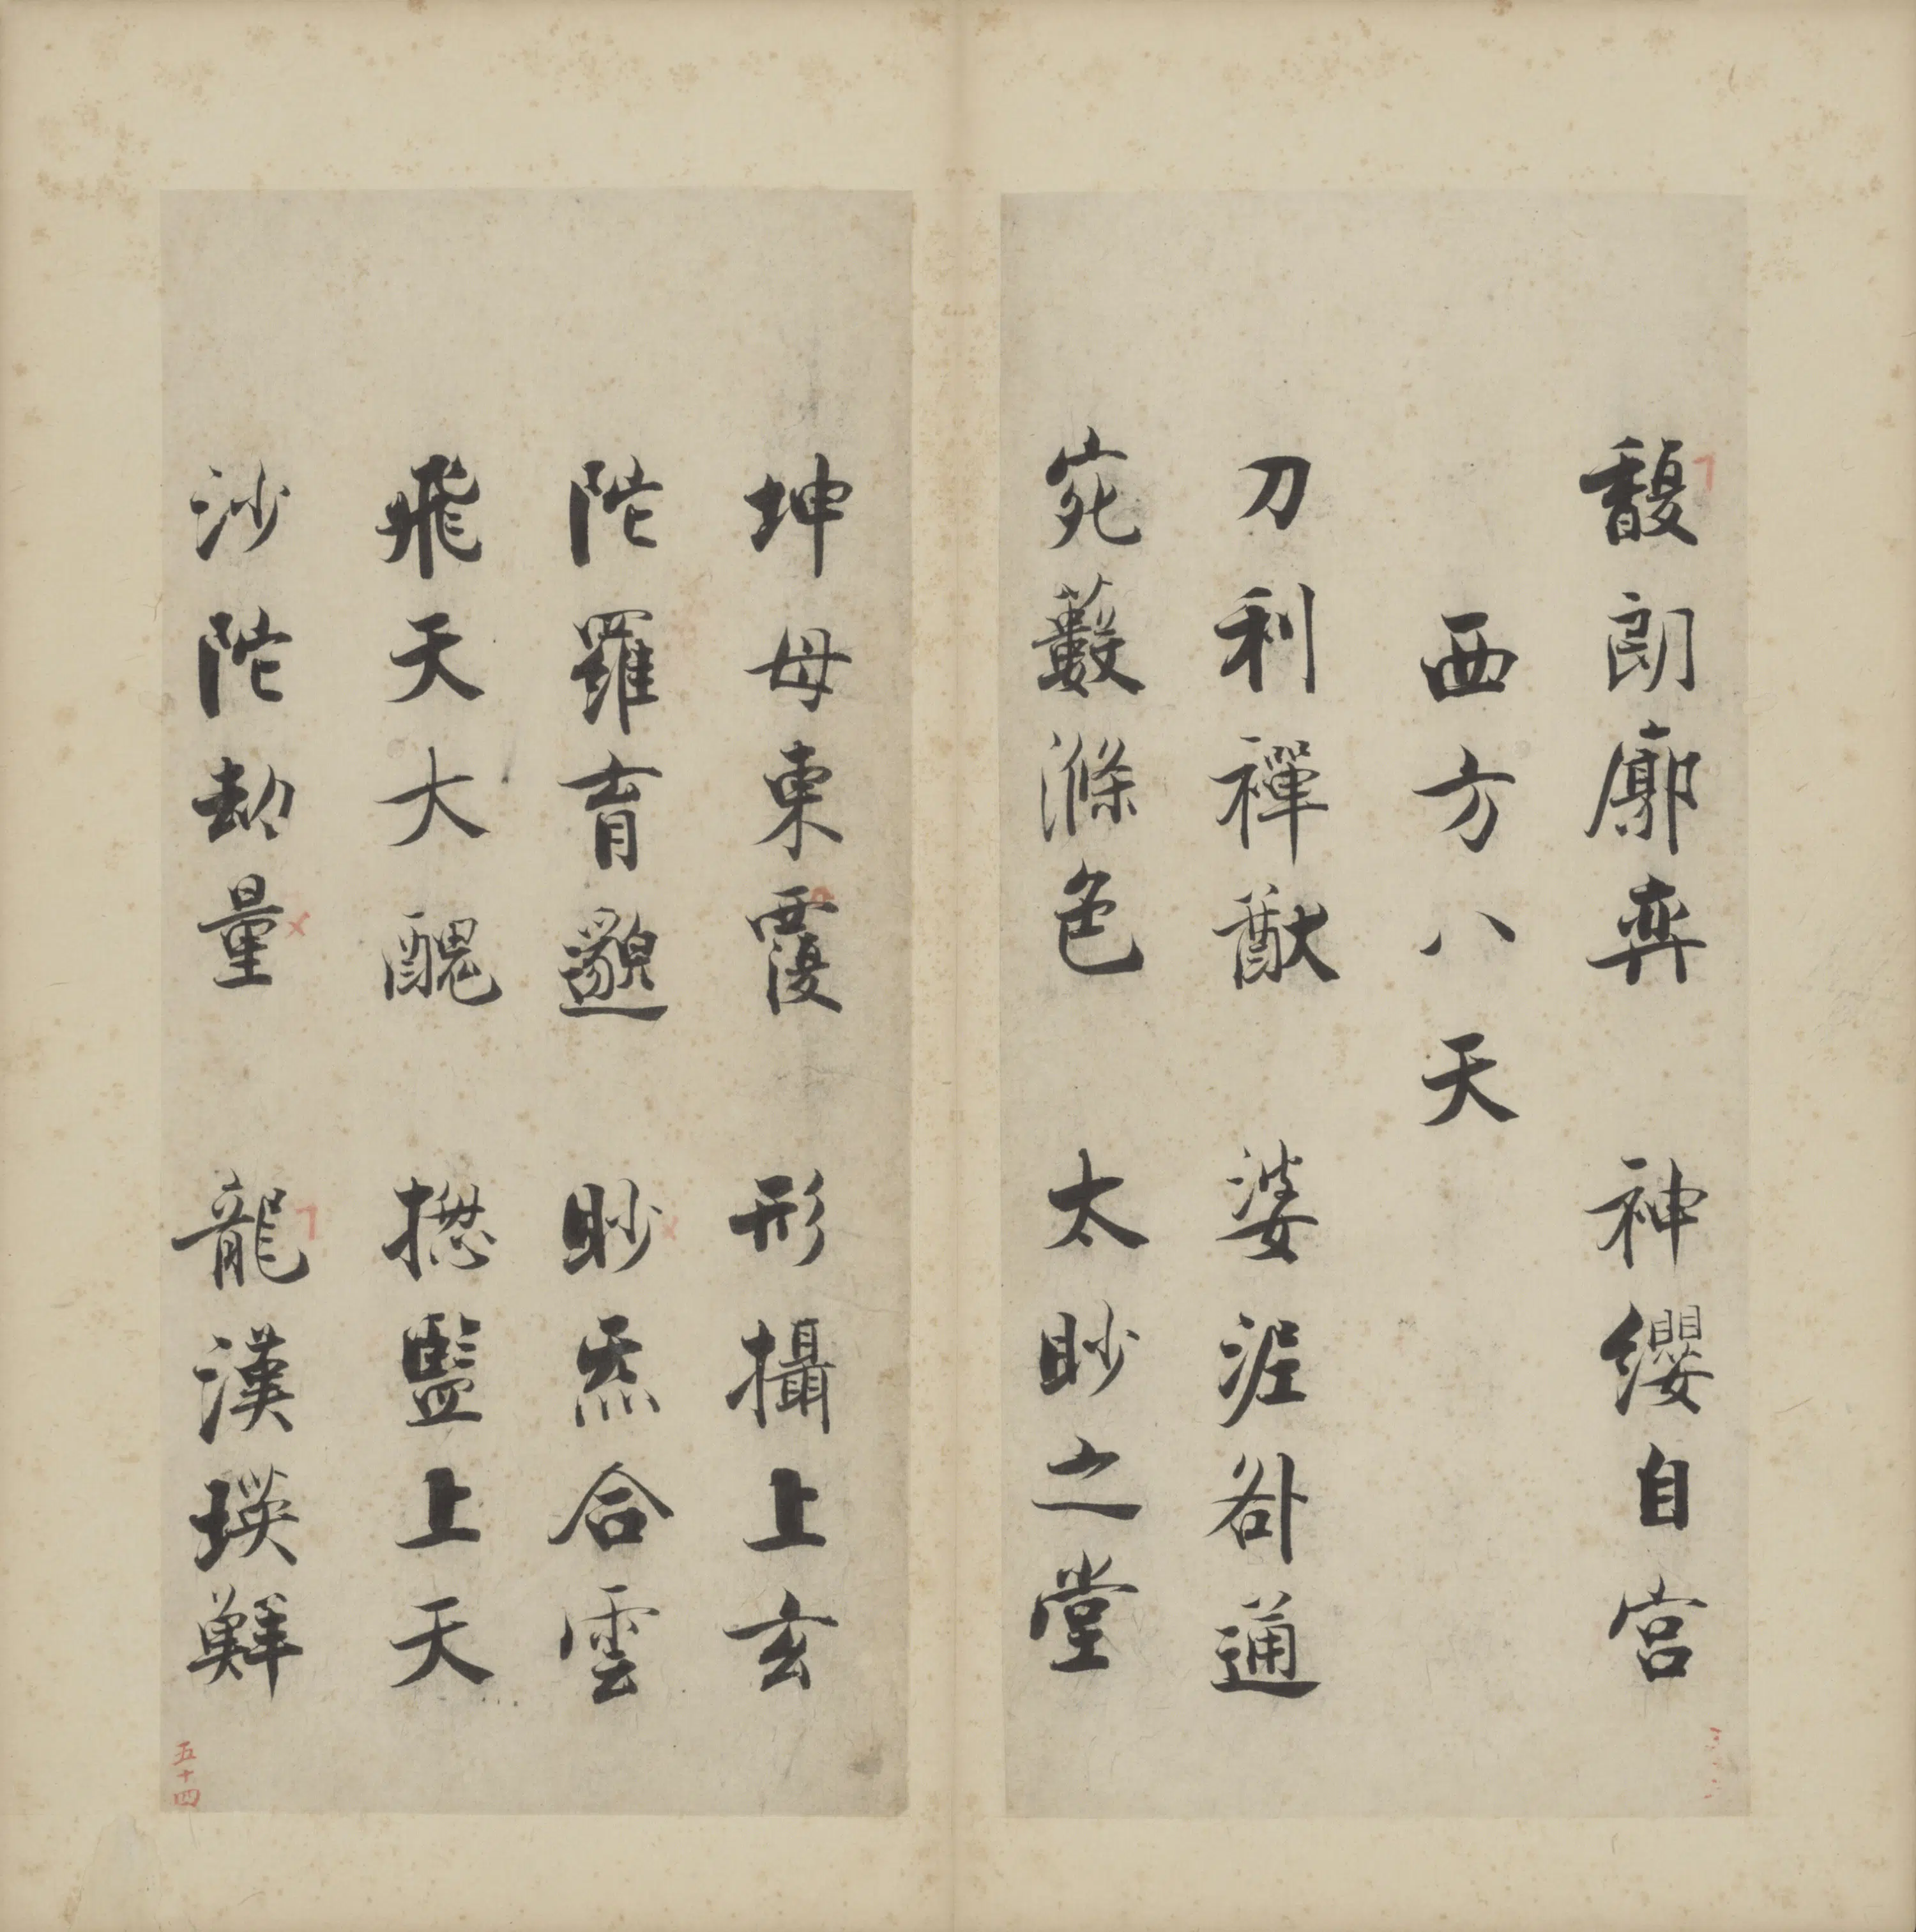 馥朗廓奕　神纓自宮
西方八天
刀利禪猷　婆泥咎通
宛藪滌色　太眇之堂
坤母東覆　形攝上玄
陀羅育邈　眇炁合雲
飛天大醜　揔監上天
沙陀劫量　龍漢瑛鮮
五十四